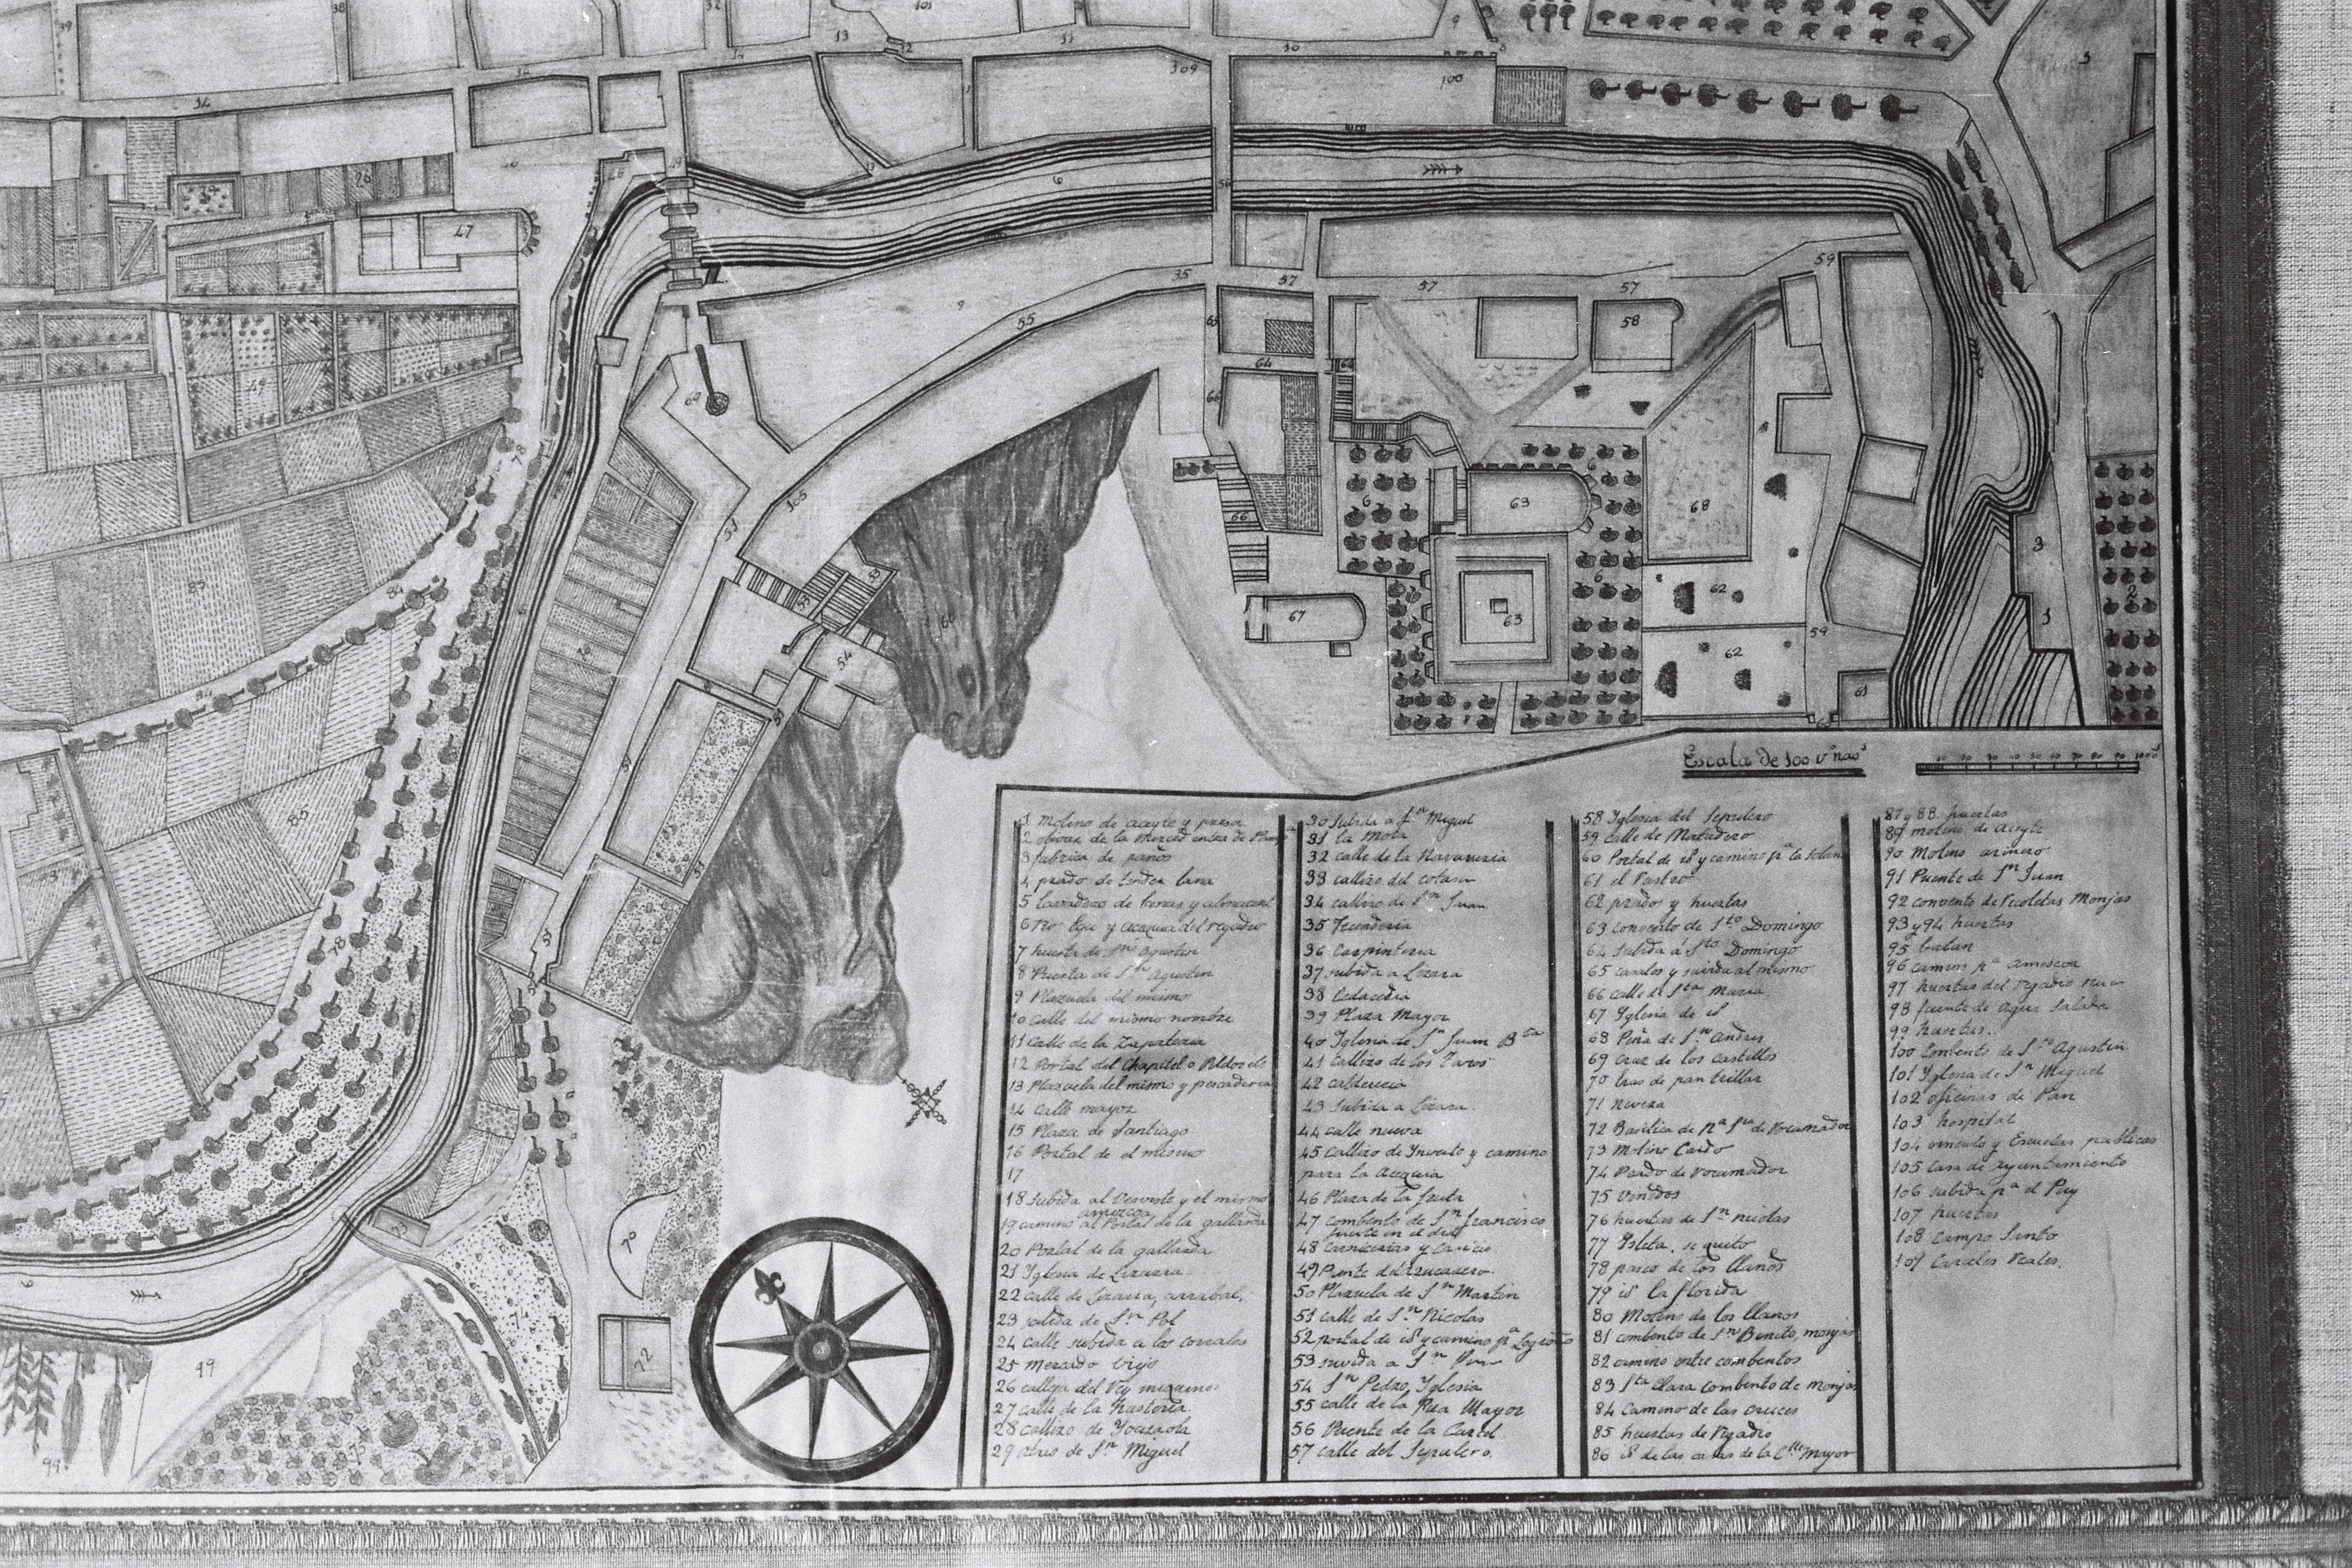 Escala de 100 v.s nav.s
10 20 30 40 50 60 70 80 90 100
1 Molino de aceyte y presa
2 olivar de la Merced
3 fabrica de paños
4 prado de tender lana
5 Lavadero de lanas y
6 Rio Ega y acequia del regadio
7 huerta de Sn Agustin
8 Puerta de Sn Agustin
9 Plazuela del mismo
10 Calle del mismo nombre
11 Calle de la Zapateria
12 Portal del Chapitel o
13 Plazuela del mismo y pescaderia
14 Calle mayor
15 Plaza de Santiago
16 Portal de el mismo
17
18 subida al y el mismo
amezcoa
19 camino al Portal de la gallarda
20 Portal de la gallarda
21 Yglesia de Lizarra
22 calle de Lizarra, arrabal,
23 salida de Sn Pol
24 calle subida a los corrales
25 mercado viejo
26 calleja del Rey
27 calle de la
28 callizo de
29 atrio de Sn Miguel
30 Subida a Sn Miguel
31 la Mota
32 calle de la Navarreria
33 callizo del
34 callizo de Sn Juan
35 Tecenderia
36 Carpinteria
37 subida a Lizara
38 Cedaceria
39 Plaza Mayor
40 Yglesia de Sn Juan Bta
41 Callizo de los Toros
42 caldereria
43 Subida a Lizara
44 calle nueva
45 Callizo de y camino
para la Acequia
46 Plaza de la fruta
47 combento de Sn francisco
fuerte en el dia
48 Carnicerias y
49 Puente del Azucarero.
50 Plazuela de Sn Martin
51 calle de Sn Nicolas
52 portal de id y camino pa Logroño
53 suvida a Sn
54 Sn Pedro, Yglesia
55 calle de la Rua Mayor
56 Puente de la Carcel
57 calle del Sepulcro.
58 Yglesia del Sepulcro
59 calle de Matadero
60 Portal de id y camino pa la
61 el Rastro
62 prados y huertas
63 Convento de Sto Domingo
64 Subida a Sto Domingo
65 casales y suvida al mismo
66 Calle de Sta Maria
67 Yglesia de id
68 Peña de Sn Andres
69 Cruz de los Castillos
70 Eras de pan trillar
71 Nevera
72 Basilica de Na Sra de Rocamador
73 Molino Caido
74 Prado de Rocamador
75 viñedos
76 huertas de Sn Nicolas
77
78 paseo de los llanos
79 id la florida
80 Molino de los llanos
81 combento de Sn Benito, monjas
82 camino entre combentos
83 Sta Clara combento de monjas
84 Camino de las cruces
85 huertas de Regadio
86 id de las casas de la Clle Mayor
87 y 88 huertas
89 molino de Aceyte
90 Molino arinero
91 Puente de Sn Juan
92 convento de Recoletas Monjas
93 y 94 huertas
95 batan
96 camino pa amescoa
97 huertas del regadio
98 fuente de Agua Salada
99 huertas.
100 Combento de Sn Agustin
101 Yglesia de Sn Miguel
102 oficinas de Pan
103 hospital
104 vinculo y Escuelas publicas
105 Casa de Ayuntamiento
106 subida pa el Puy
107 huertas
108 Campo Santo
109 Carceles Reales.